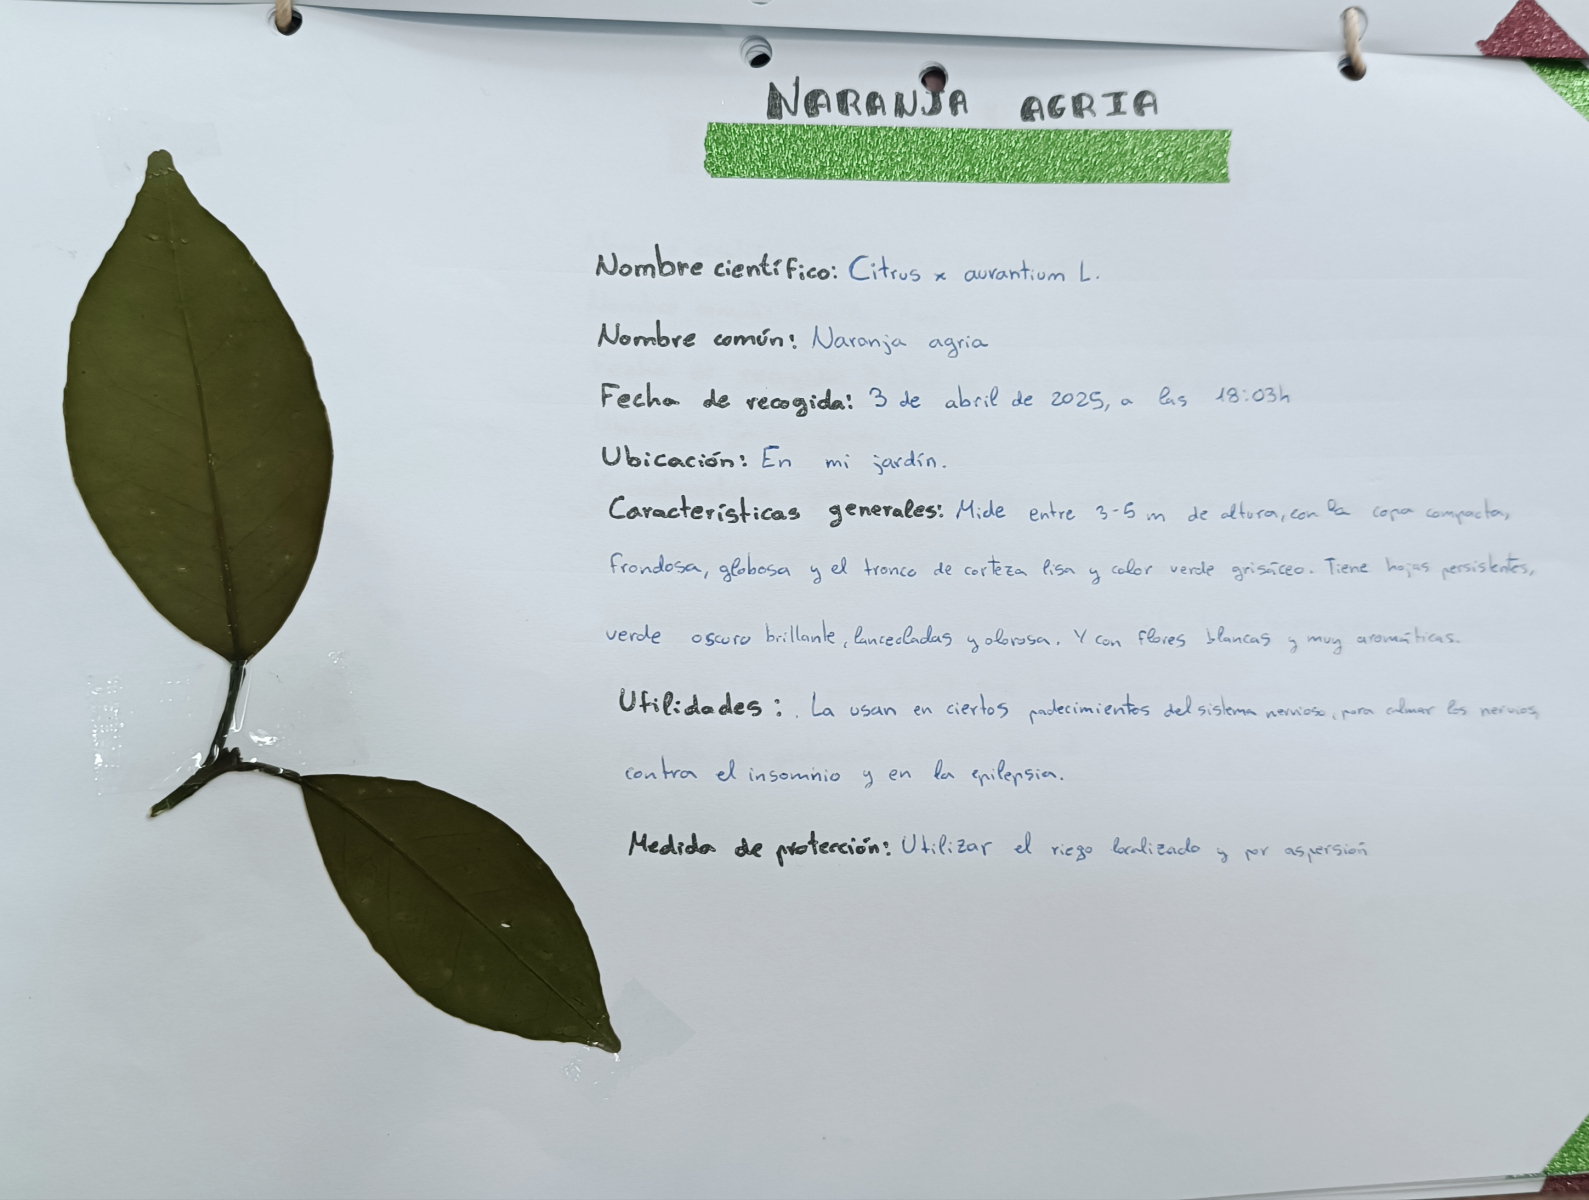 NARANJA AGRIA
Nombre científico: Citrus x aurantium L.
Nombre común: Naranja agria
Fecha de recogida: 3 de abril de 2025, a las 18:03h
Ubicación: En mi jardín.
Características generales: Mide entre 3-5 m de altura, con la copa compacta,
frondosa, globosa y el tronco de corteza lisa y color verde grisáceo. Tiene hojas persistentes,
verde oscuro brillante, lanceoladas y olorosa. Y con flores blancas y muy aromáticas.
Utilidades: . La usan en ciertos padecimientos del sistema nervioso, para calmar los nervios,
contra el insomnio y en la epilepsia.
Medida de protección: Utilizar el riego localizado y por aspersión